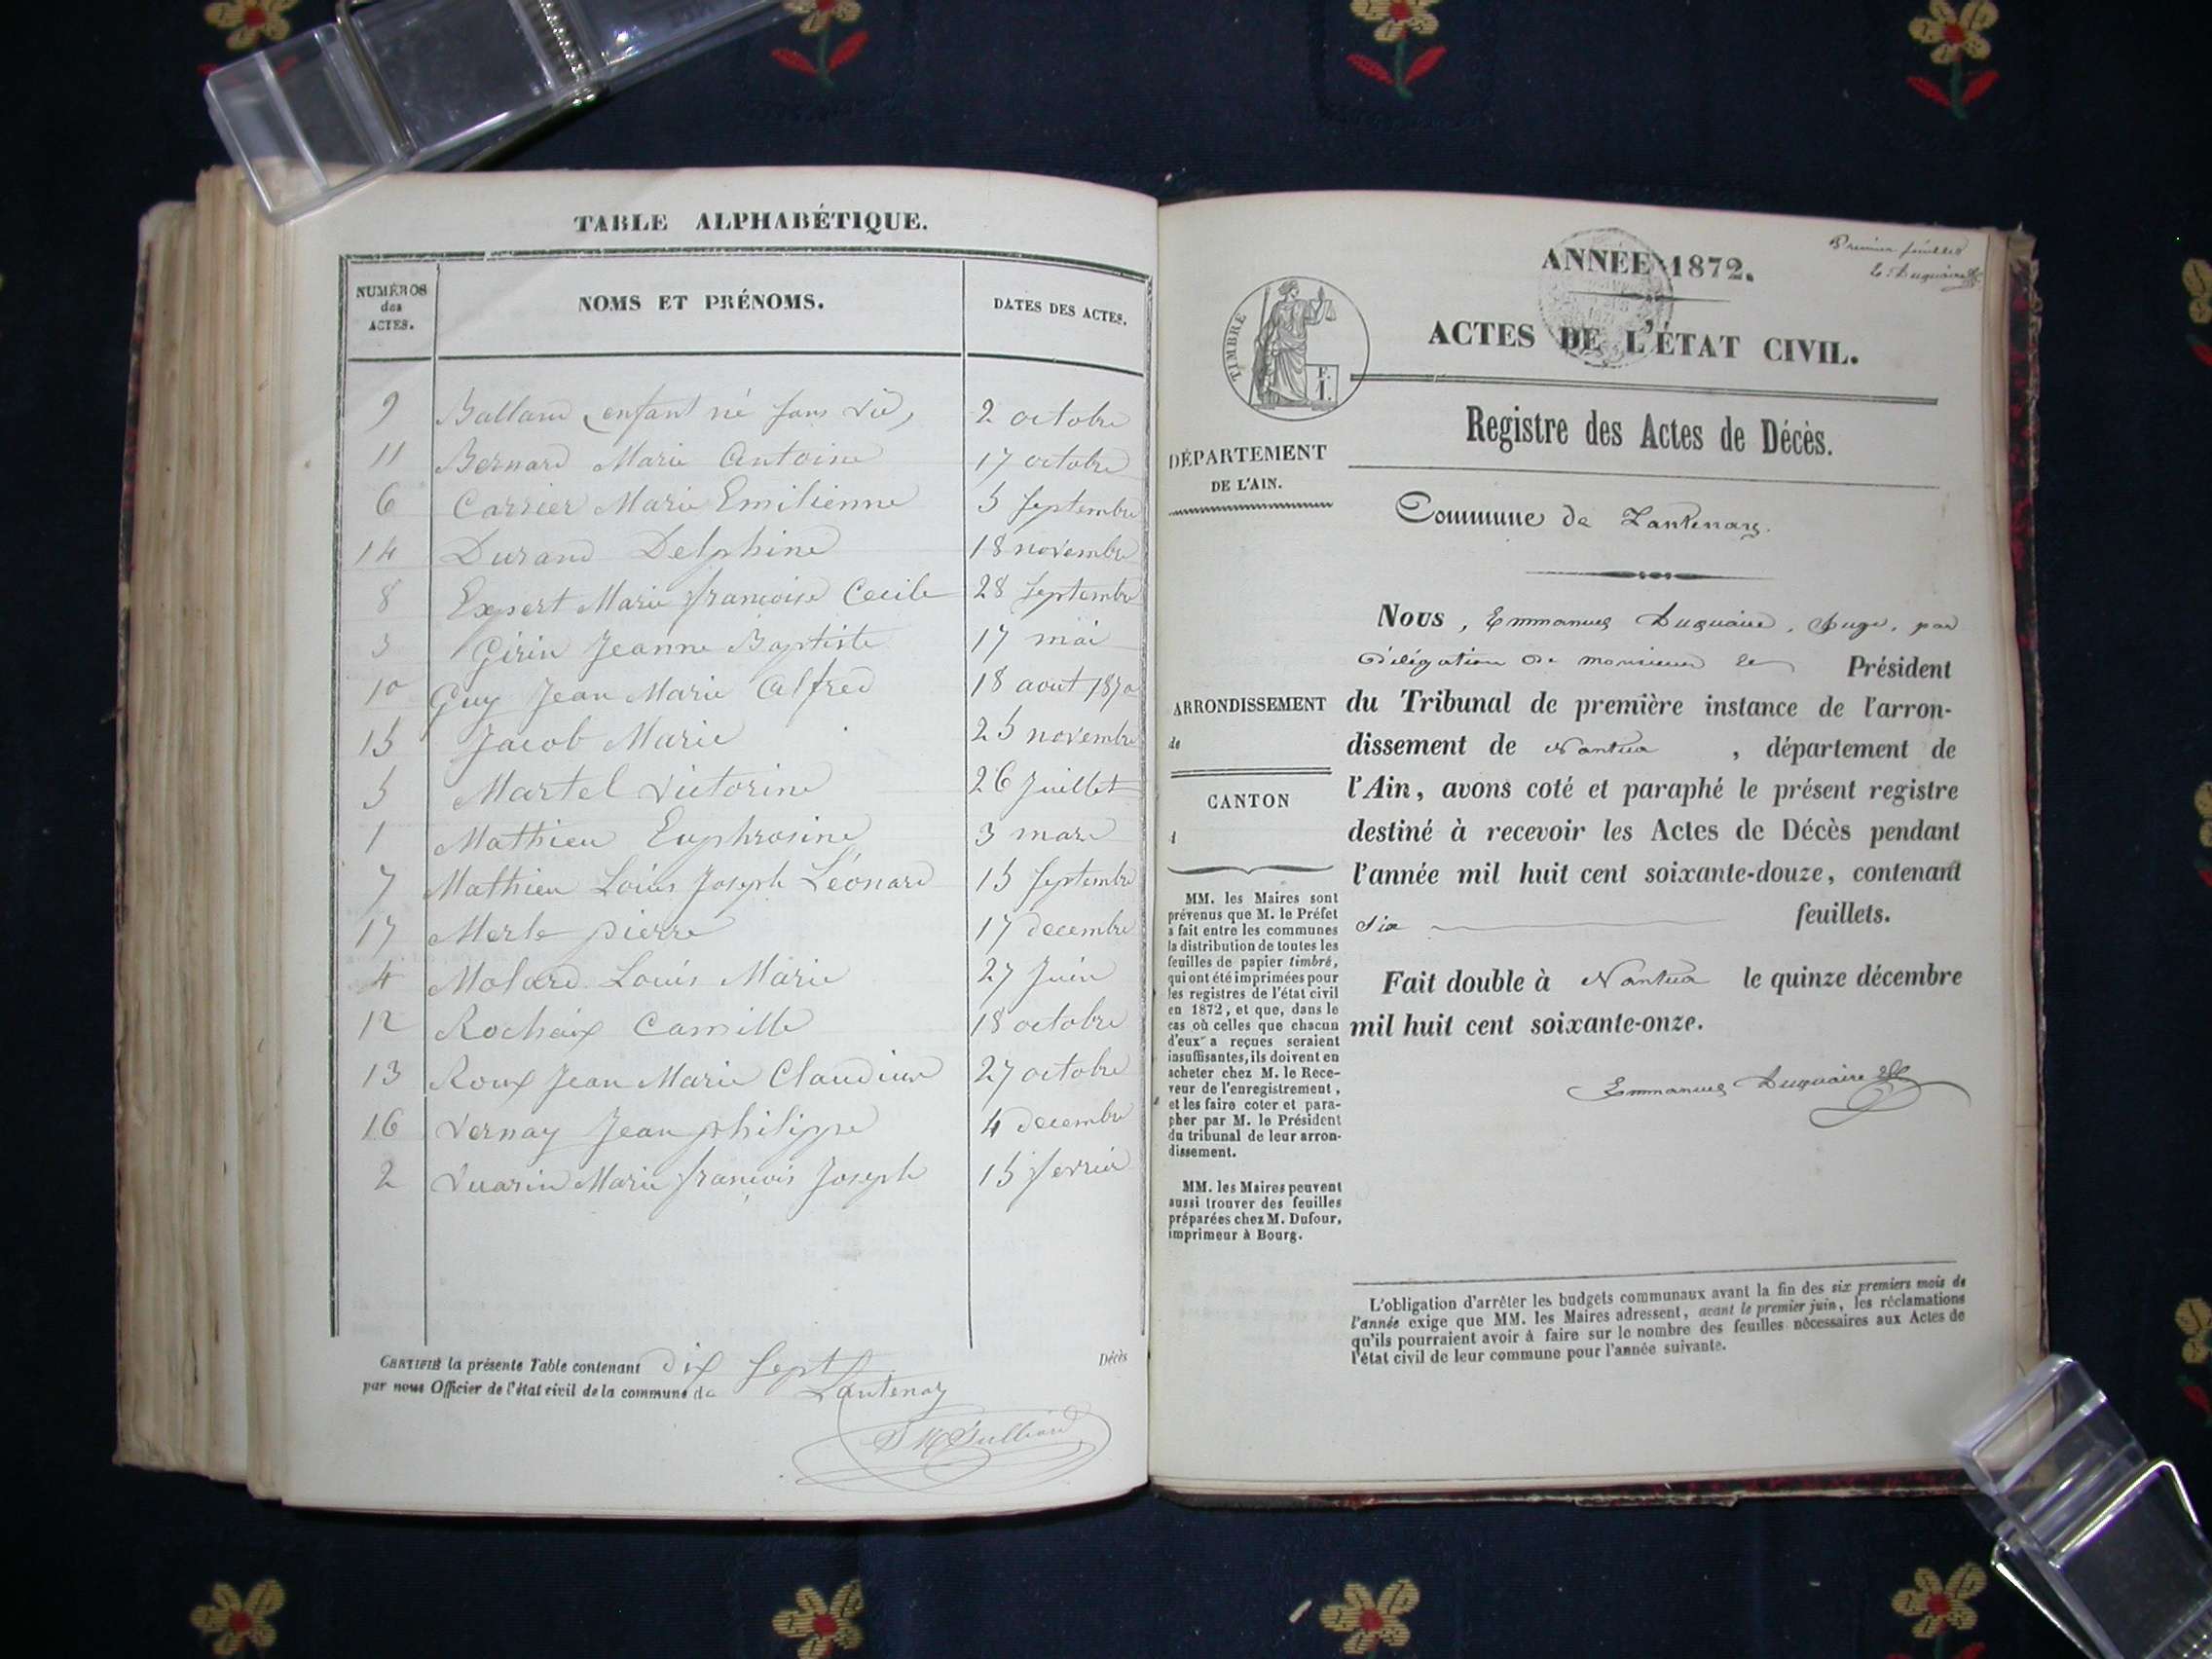 TABLE ALPHABÉTIQUE.
NUMÉROS des ACTES. NOMS ET PRÉNOMS. DATES DES ACTES.
9 Balland enfant né sans vie, 2 octobre
11 Bernard Marie Antoine 17 octobre
6 Carrier Marie Emilienne 5 septembre
14 Durand Delphine 18 novembre
8 Expert Marie françoise Cecile 28 septembre
3 Girin Jeanne Baptiste 17 mai
10 Guy Jean Marie Alfred 18 aout 1870
15 Jacob Marie 25 novembre
5 Martel Victorine 26 Juillet
1 Mathieu Euphrosine 3 mars
7 Mathieu Loius Joseph Léonard 15 septembre
17 Merle pierre 17 decembre
4 Molard Louis Marie 27 Juin
12 Rochaix Camille 18 octobre
13 Roux Jean Marie Claudius 27 octobre
16 Vernay Jean philippe 4 decembre
2 Vuarin Marie françois Joseph 15 fevrier
CERTIFIÉ la présente Table contenant dix sept Décès
par nous Officier de l'état civil de la commune de Lantenay
Premier feuillet
E. Duquaire
ANNÉE 1872.
ACTES DE L'ÉTAT CIVIL.
TIMBRE
Registre des Actes de Décès.
DÉPARTEMENT
DE L'AIN.
Commune de Lantenay.
Nous, Emmanuel Duquaire, Juge, par
délégation de monsieur le Président
du Tribunal de première instance de l'arron-
dissement de Nantua, département de
l'Ain, avons coté et paraphé le présent registre
destiné à recevoir les Actes de Décès pendant
l'année mil huit cent soixante-douze, contenant
six feuillets.
Fait double à Nantua le quinze décembre
mil huit cent soixante-onze.
Emmanuel Duquaire
ARRONDISSEMENT
de
CANTON
d
MM. les Maires sont
prévenus que M. le Préfet
a fait entre les communes
la distribution de toutes les
feuilles de papier timbré,
qui ont été imprimées pour
les registres de l'état civil
en 1872, et que, dans le
cas où celles que chacun
d'eux a reçues seraient
insuffisantes, ils doivent en
acheter chez M. le Rece-
veur de l'enregistrement,
et les faire coter et para-
pher par M. le Président
du tribunal de leur arron-
dissement.
MM. les Maires peuvent
aussi trouver des feuilles
préparées chez M. Dufour,
imprimeur à Bourg.
L'obligation d'arrêter les budgets communaux avant la fin des six premiers mois de
l'année exige que MM. les Maires adressent, avant le premier juin, les réclamations
qu'ils pourraient avoir à faire sur le nombre des feuilles nécessaires aux Actes de
l'état civil de leur commune pour l'année suivante.